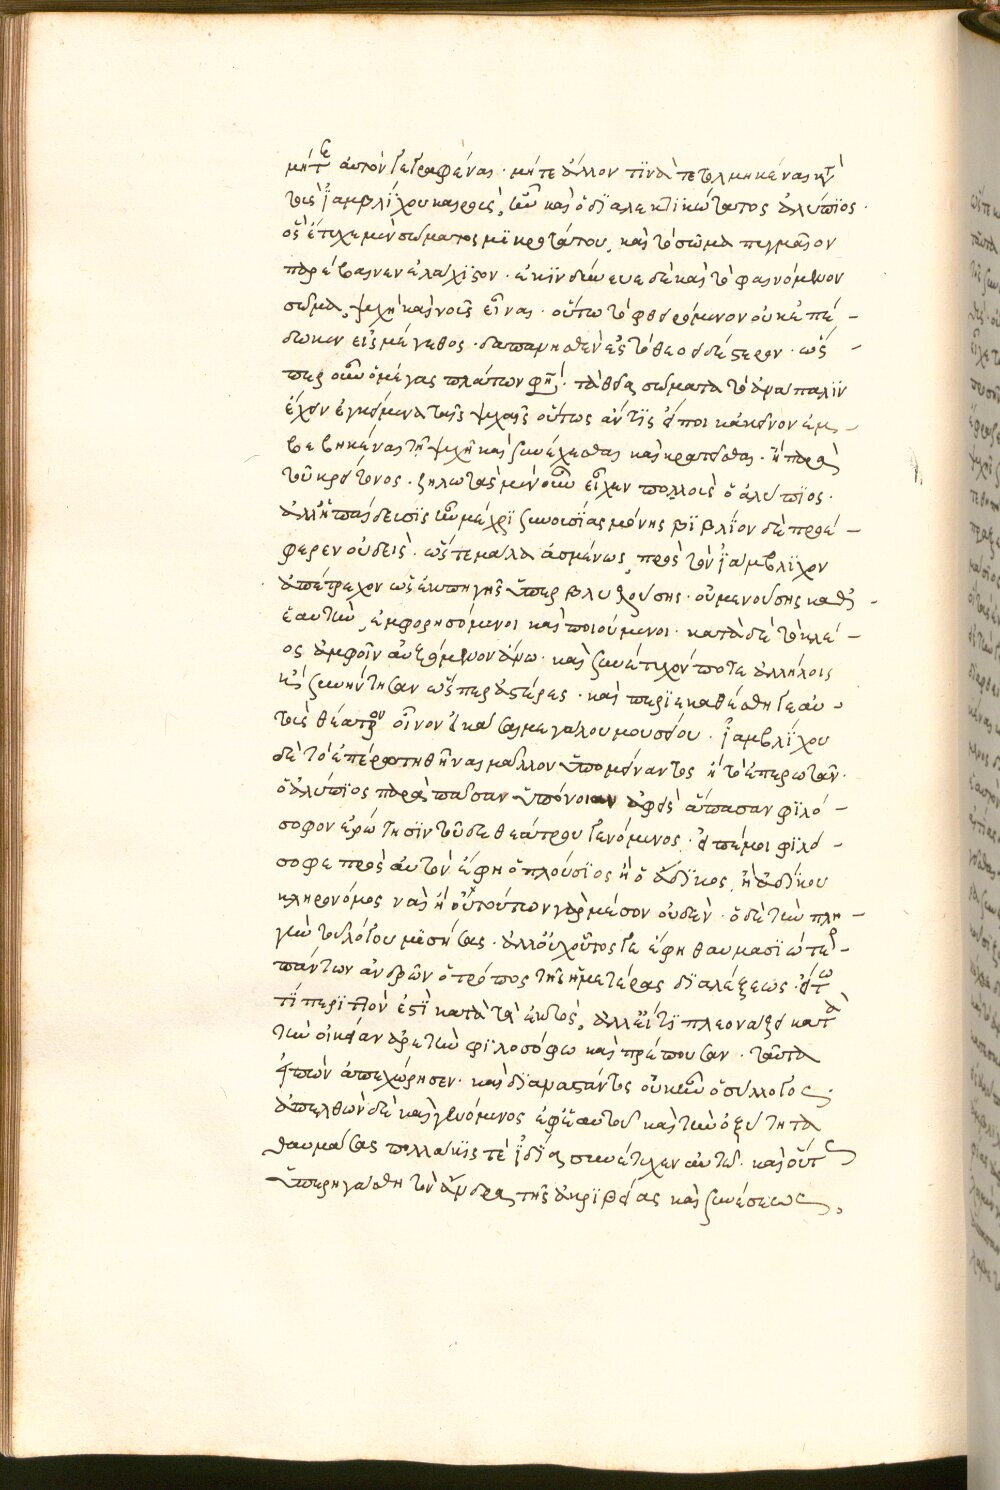 μήτε αὐτὸν γεγραφέναι· μήτε ἄλλον τινὰ τετολμηκέναι κατὰ
τοὺς ἰαμβλίχου καιροὺς, ἦν καὶ ὁ διαλεκτικώτατος ἀλύπιος·
ὃς ἔτυχε μὲν σώματος μικροτάτου, καὶ τὸ σῶμα πυγμαῖον
παρέβαινεν ἐλάχιστον· ἐκινδύνευε δὲ καὶ τὸ φαινόμενον
σῶμα, ψυχὴ καὶ νοῦς εἶναι· οὕτω τὸ φθειρόμενον οὐκ ἐπέ-
δωκεν εἰς μέγεθος· δαπανηθὲν εἰς τὸ θεοειδέστερον· ὥσ-
περ οὖν ὁ μέγας πλάτων φησί· τὰ θεῖα σώματα τὸ ἀνάπαλιν
ἔχειν ἐγκείμενα ταῖς ψυχαῖς οὕτως ἄν τις εἴποι κἀκεῖνον ἐμ-
βεβηκέναι τῇ ψυχῇ καὶ συνέχεσθαι καὶ κρατεῖσθαι· ἢ παρὰ
τοῦ κρείττονος· ζηλωτὰς μὲν οὖν εἶχεν πολλοὺς ὁ ἀλύπιος·
ἀλλ' ἡ παίδευσις ἦν μέχρι συνουσίας μόνης βιβλίον δὲ προέ-
φερεν οὐδεὶς· ὥστε μάλα ἀσμένως, πρὸς τὸν ἰάμβλιχον
ἀπέτρεχον ὡς ἐκ πηγῆς ὑπερβλυζούσης· οὐ μενούσης καθ'
ἑαυτὴν, ἐμφορησόμενοι καὶ ποιούμενοι· κατὰ δὲ τὸ κλέ-
ος ἀμφοῖν αὐξόμενον ἄνω· καὶ συνέτυχόν ποτε ἀλλήλοις
καὶ συνήντησαν ὥσπερ ἀστέρες· καὶ περιεκαθέσθη γε αὐ-
τοὺς θέατρον οἷον εἰκάσαι μεγάλου μουσείου· ἰαμβλίχου
δὲ τὸ ἐπερωτηθῆναι μᾶλλον ὑπομείναντος ἢ τὸ ἐπερωτᾶν·
ὁ ἀλύπιος παρὰ πᾶσαν ὑπόνοιαν ἀφεὶς ἅπασαν φιλό-
σοφον ἐρώτησιν τοῦ δὲ θεάτρου γενόμενος· εἰπέ μοι φιλό-
σοφε πρὸς αὐτὸν ἔφη ὁ πλούσιος ἢ ὁ ἄδικος, ἢ ἀδίκου
κληρονόμος ναὶ ἢ οὔ τούτων γὰρ μέσον οὐδὲν· ὁ δὲ τὴν πλη-
γὴν τοῦ λόγου μισήσας· ἀλλ' οὐχ οὗτός γε ἔφη θαυμασιώτατε
πάντων ἀνδρῶν ὁ τρόπος τῆς ἡμετέρας διαλέξεως· εἴ τῳ
τί περιττὸν ἐστὶ κατὰ τὰ ἐκτὸς, ἀλλ' εἴ τι πλεονάζει κατὰ
τὴν οἰκείαν ἀρετὴν φιλοσόφῳ καὶ πρέπουσαν· ταῦτα
εἰπὼν ἀπεχώρησεν· καὶ διαναστάντος οὐκ ἦν ὁ σύλλογος·
ἀπελθὼν δὲ καὶ γενόμενος ἐφ' ἑαυτοῦ καὶ τὴν ὀξύτητα
θαυμάσας πολλάκις τὲ ἰδίᾳ συνέτυχεν αὐτῷ· καὶ οὕτως
ὑπερηγάσθη τὸν ἄνδρα τῆς ἀκριβείας καὶ συνέσεως,